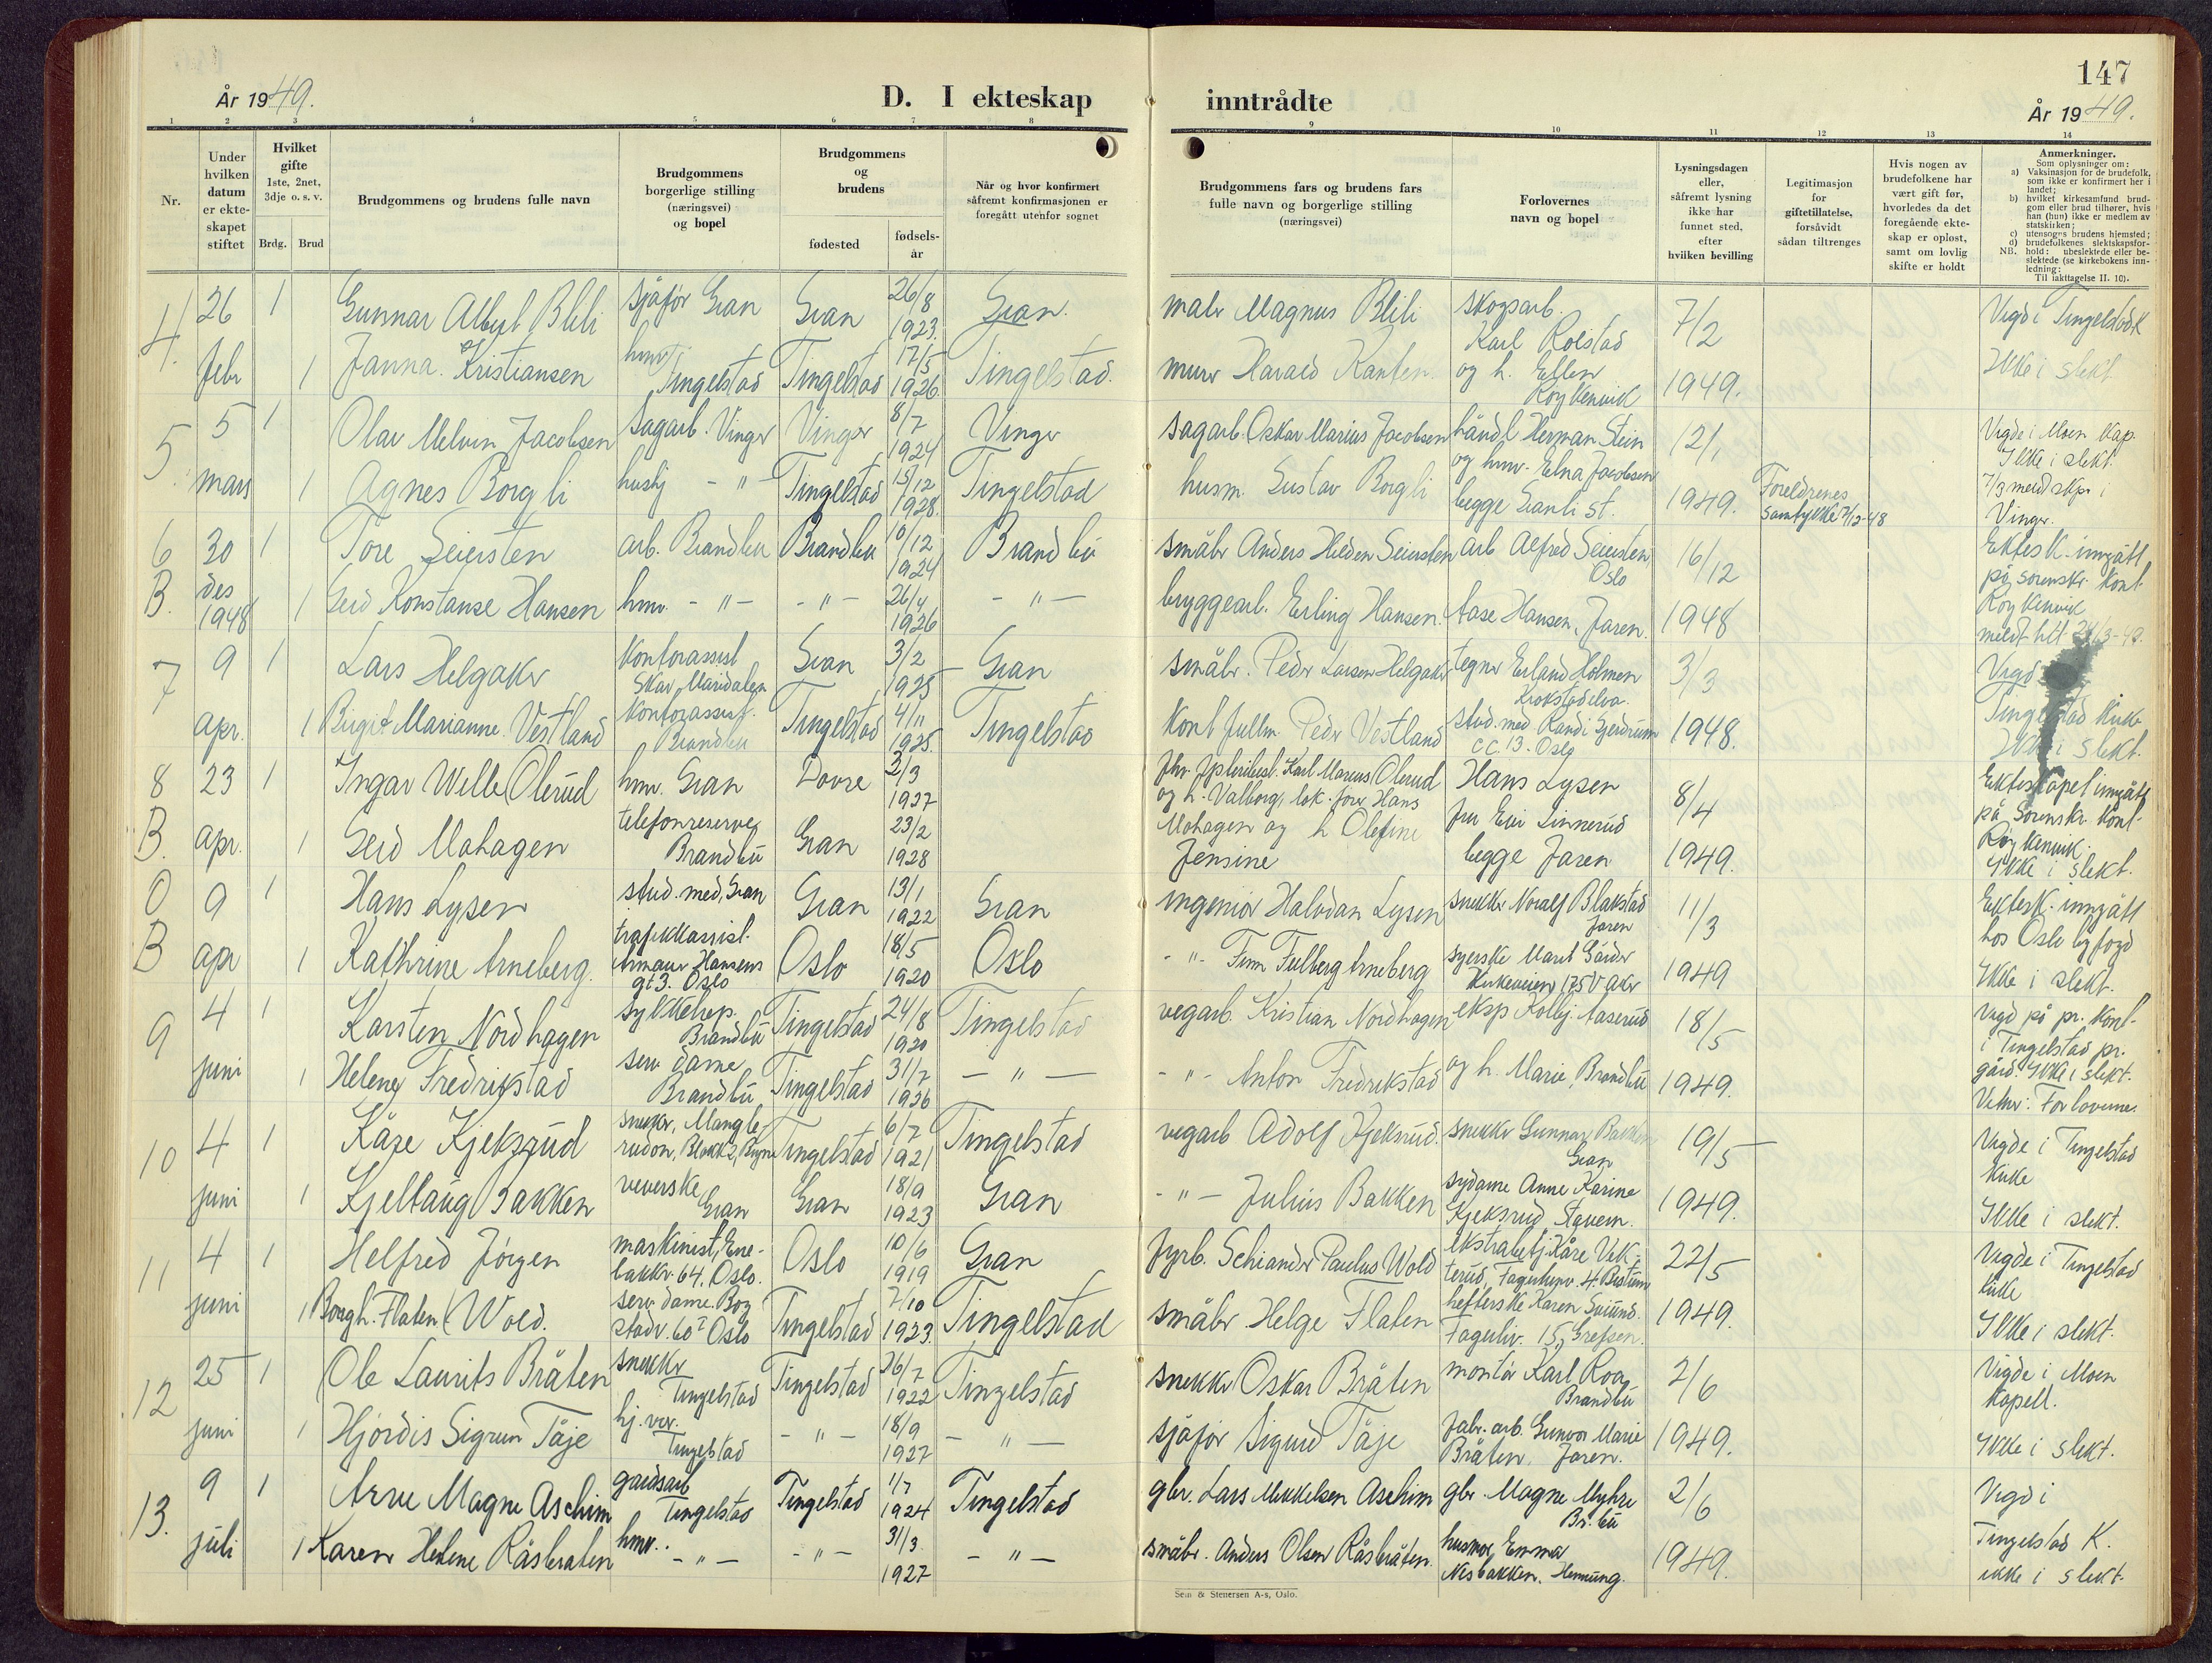 147
År 1949.
D. I ekteskap inntrådte
År 1949.
1 2 3 4 5 6 7 8 9 10 11 12 13 14
Nr.
Under hvilken datum er ekte-skapet stiftet
Hvilket gifte 1ste, 2net, 3dje o. s. v.
Brdg. Brud
Brudgommens og brudens fulle navn
Brudgommens borgerlige stilling (næringsvei) og bopel
Brudgommens og brudens
fødested
fødsels-år
Når og hvor konfirmert såfremt konfirmasjonen er foregått utenfor sognet
Brudgommens fars og brudens fars fulle navn og borgerlige stilling (næringsvei)
Forlovernes navn og bopel
Lysningsdagen eller, såfremt lysning ikke har funnet sted, efter hvilken bevilling
Legitimasjon for giftetillatelse, forsåvidt sådan tiltrenges
Hvis nogen av brudefolkene har vært gift før, hvorledes da det foregående ekte-skap er opløst, samt om lovlig skifte er holdt
Anmerkninger.
Som oplysninger om:
a) Vaksinasjon for de brudefolk, som ikke er konfirmert her i landet;
b) hvilket kirkesamfund brud-gom eller brud tilhører, hvis han (hun) ikke er medlem av statskirken;
c) utensogns brudens hjemsted;
d) brudefolkenes slektskapsfor-hold: ubeslektede eller be-slektede (se kirkebokens inn-ledning:
NB.
Til iakttagelse II. 10).
4. 26 1 Gunnar Albert Blili sjåfør Gran Gran 26/8 1923. Gran. maler Magnus Blili skogsarb. Karl Rolstad 7/2 Vigd i Tingelstad K
febr 1 Janna Kristiansen hmv. Tingelstad Tingelstad 17/5 1926. Tingelstad. murer Harald Kanten og h. Ellen Røykenvik 1949. Ikke i slekt
5. 5 1 Olav Melvin Jacobsen sagarb. Vinger Vinger 8/7 1924 Vinger sagarb. Oskar Marius Jacobsen håndl Herman Stein 12/1 Vigde i Moen Kap. Ikke i slekt.
mars 1 Agnes Borgli hushj - " - Tingelstad 15/12 1928. Tingelstad husm. Gustav Borgli og hmv. Elna Jacobsen begge Granli st. 1949. Foreldrenes samtykke 7/12-48 7/3 meld skpr i Vinger.
6 B. 30 1 Tore Seiersten arb. Brandbu Brandbu 10/12 1924 Brandbu småbr Anders Helden Seiersten arb Alfred Seiersten Oslo 16/12 Ektesk. inngått på sorenskr. kont.
des 1948 1 Gerd Konstanse Hansen hmv. - " - - " - 26/4 1926 - " - bryggearb. Erling Hansen. Aase Hansen, Jaren. 1948 Røykenvik meldt hit
7 9 1 Lars Helgaker Kontorassist Skar, Maridalen Gran 3/2 1925 Gran småbr. Peder Larsen Helgaker tegner Erland Holmen Krokstadelva. 3/3 Vigd
apr. 1 Birgit Marianne Vestland Kontorassist. Brandbu Tingelstad 4/11 1925. Tingelstad Kont fullm Peder Vestland stud. med Randi Gjerdrum C C. 13. Oslo 1948. Tingelstad Kirke Ikke i slekt.
8 B. 23 1 Ingar Welle Olerud hmv. Gran Dovre 2/3 1927 Karl Marius Olerud og h. Valborg, lok. fører Hans Hans Lysen 8/4 Ekteskapet inngått på Sorenskr. kont.
apr. 1 Gerd Mohagen telefonreserve, Brandbu Gran 23/2 1928 Mohagen og h Olefine Jensine fru Evi Linnerud begge Jaren 1949. Røykenvik. Ikke i slekt.
O B 9 1 Hans Lysen stud. med, Gran Gran 13/1 1922 Gran ingeniør Halvdan Lysen snekker Noralf Blakstad Jaren 11/3 Ektesk. inngått hos Oslo byfogd
apr 1 Kathrine Arneberg. trafikkassist. Armauer Hansens gt 3. Oslo Oslo 18/5 1920 Oslo - " - Finn Fulberg Arneberg syerske Marit Gårder Kirkeveien 175 V aker 1949 Ikke i slekt.
9 4 1 Karsten Nordhagen Brandbu Tingelstad 24/8 1920 Tingelstad vegarb. Kristian Nordhagen eksp Kolbj. Aaserud 18/5 vigd på pr. kont- i Tingelstad pr.
juni 1 Helene Fredrikstad serv dame Brandbu Tingelstad 31/7 1926 - " - - " - Anton Fredrikstad og h. Marie, Brandbu 1949. gård. Ikke i slekt. Vitner: Forloverne.
10 4 1 Kåre Kjeksrud snekker, Mangle-rudvn, Blokk 2, Bryn Tingelstad 6/7 1921 Tingelstad vegarb Adolf Kjeksrud. snekker Gunnar Bakken Gran 19/5 Vigde i Tingelstad Kirke
juni 1 Kjellaug Bakken veverske Gran Gran 18/9 1923 Gran - " - Julius Bakken sydame Anne Karine Kjeksrud Stavern. 1949. Ikke i slekt.
11 4 1 Helfred Jörgen maskinist, Ene-bakkv. 64, Oslo. Oslo 10/6 1919 Gran fyrb. Schiander Paulus Wold ekstrabetj. Kåre Vek-terud, 22/5 Vigde i Tingelstad Kirke
juni 1 Borgh. Flaten (Wold. serv dame. Bog stadv. 60 I Oslo Tingelstad 7/10 1923. Tingelstad småbr Helge Flaten hefterske Karen Fagerliv. 15, Grefsen. 1949. Ikke i slekt.
12 25 1 Ole Laurits Bråten snekker Tingelstad Tingelstad 26/7 1922 Tingelstad snekker Oskar Bråten montør Karl Roa, Brandbu 2/6 Vigde i Moen Kapell.
juni 1 Hjördis Sigrun Tåje hj. vær. Tingelstad - " - 18/9 1927 - " - sjåfør Sigurd Tåje fabr. arb. Gunvor Marie Bråten, Jaren. 1949. Ikke i slekt.
13. 9 1 Arne Magne Aschim gardsarb Tingelstad Tingelstad 1/7 1924 Tingelstad gbr. Lars Mikkelsen Aschim gbr. Magne Myhre Br. bu 2/6 Vigd i
juli 1 Karen Helene Råsbraten hmv. - " - - " - 31/3 1927 - " - småbr. Anders Olsen Råsbråten. husmor, Emma Nesbakken. 1949. Tingelstad K. ikke i slekt.
Sem & Stenersen A-s, Oslo.